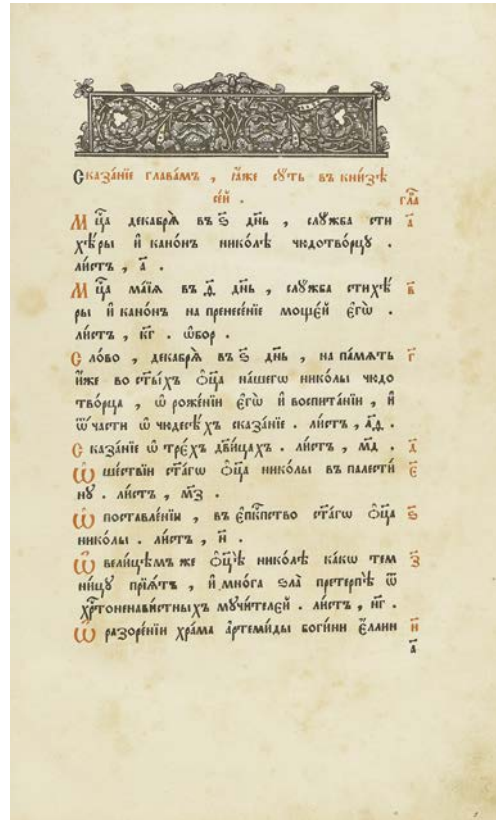 Сказа́нїе глава́мъ , ꙗ҆̀же сꙋ́ть въ кни́зѣ
се́й . гл҃а
Мц҃а декабрѧ̀ въ ѕ҃ дн҃ь , слꙋ́жба сти а҃
хѣ́ры и҆ кано́нъ нико́лѣ чюдотво́рцꙋ .
ли́стъ , а҃ .
Мц҃а ма́їѧ въ ѳ҃ дн҃ь , слꙋ́жба стихѣ́ в҃
ры и҆ кано́нъ на пренесе́нїе моще́й є҆гѡ̀ .
ли́стъ , кг҃ . ѡ҆бор .
Сло́во , декабрѧ̀ въ ѕ҃ дн҃ь , на па́мѧть г҃
и҆́же во ст҃ы́хъ ѻ҆ц҃а̀ на́шегѡ нико́лы чюдо
тво́рца , ѡ҆ роже́нїи є҆гѡ̀ и҆ воспита́нїи , и҆
ѿ ча́сти ѡ҆ чюдесѣ́хъ сказа́нїе . ли́стъ ,
Сказа́нїе ѡ҆ тре́хъ дв҃и́цахъ . ли́стъ , мд҃ . д҃
Ѡ҆ ше́ствїи ст҃а́гѡ ѻ҆ц҃а̀ нико́лы въ палести́ є҃
нꙋ . ли́стъ , мз҃ .
Ѡ҆ поставле́нїи , въ є҆пⷭ҇кпство ст҃а́гѡ ѻ҆ц҃а̀ ѕ҃
нико́лы . ли́стъ , н҃ .
Ѡ҆ вели́цѣмъ же ѻ҆ц҃ѣ̀ нико́лѣ ка́кѡ тем з҃
ни́цꙋ прїѧ́тъ , и҆ мно́га ѕла̀ претерпѣ̀ ѿ
хрⷭ҇тоненави́стныхъ мꙋчи́телей . ли́стъ , нг҃ .
Ѡ҆ разоре́нїи хра́ма а҆ртеми́ды боги́ни є҆́ллин и҃
а҃